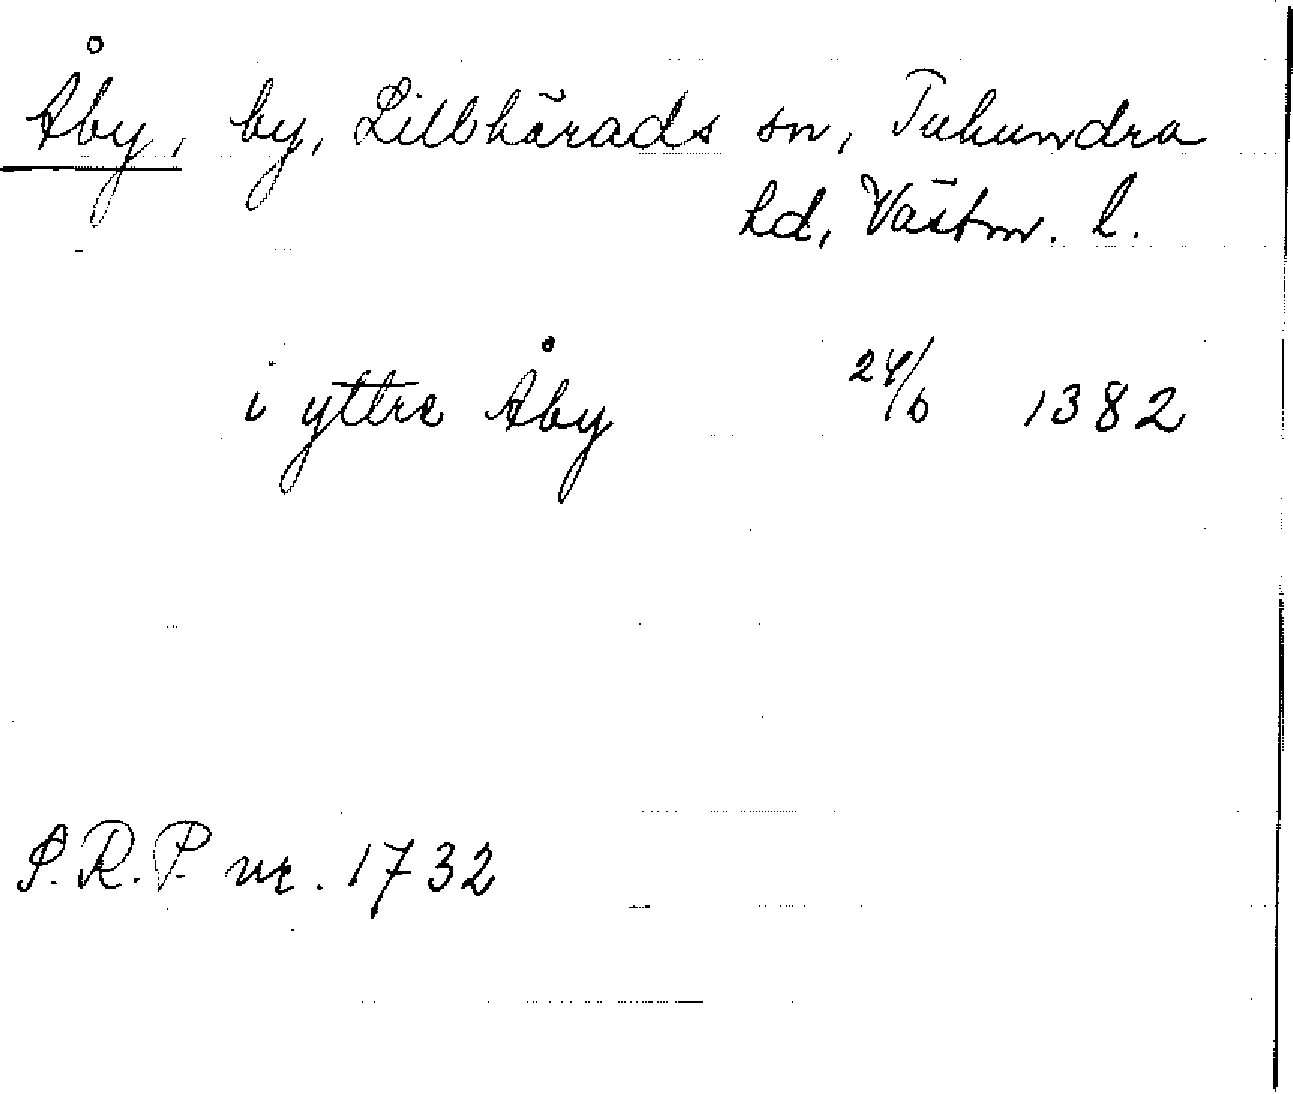 Åby, by, Lillhärads sn, Tuhundra
hd, Västm. l.
i yttre Åby 24/6 1382
S.R.P. nr. 1732